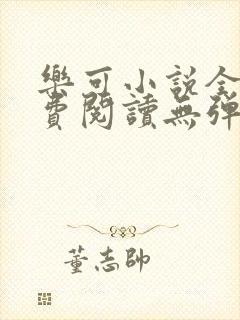 樂可小說全
費閱讀無彈
董志帥